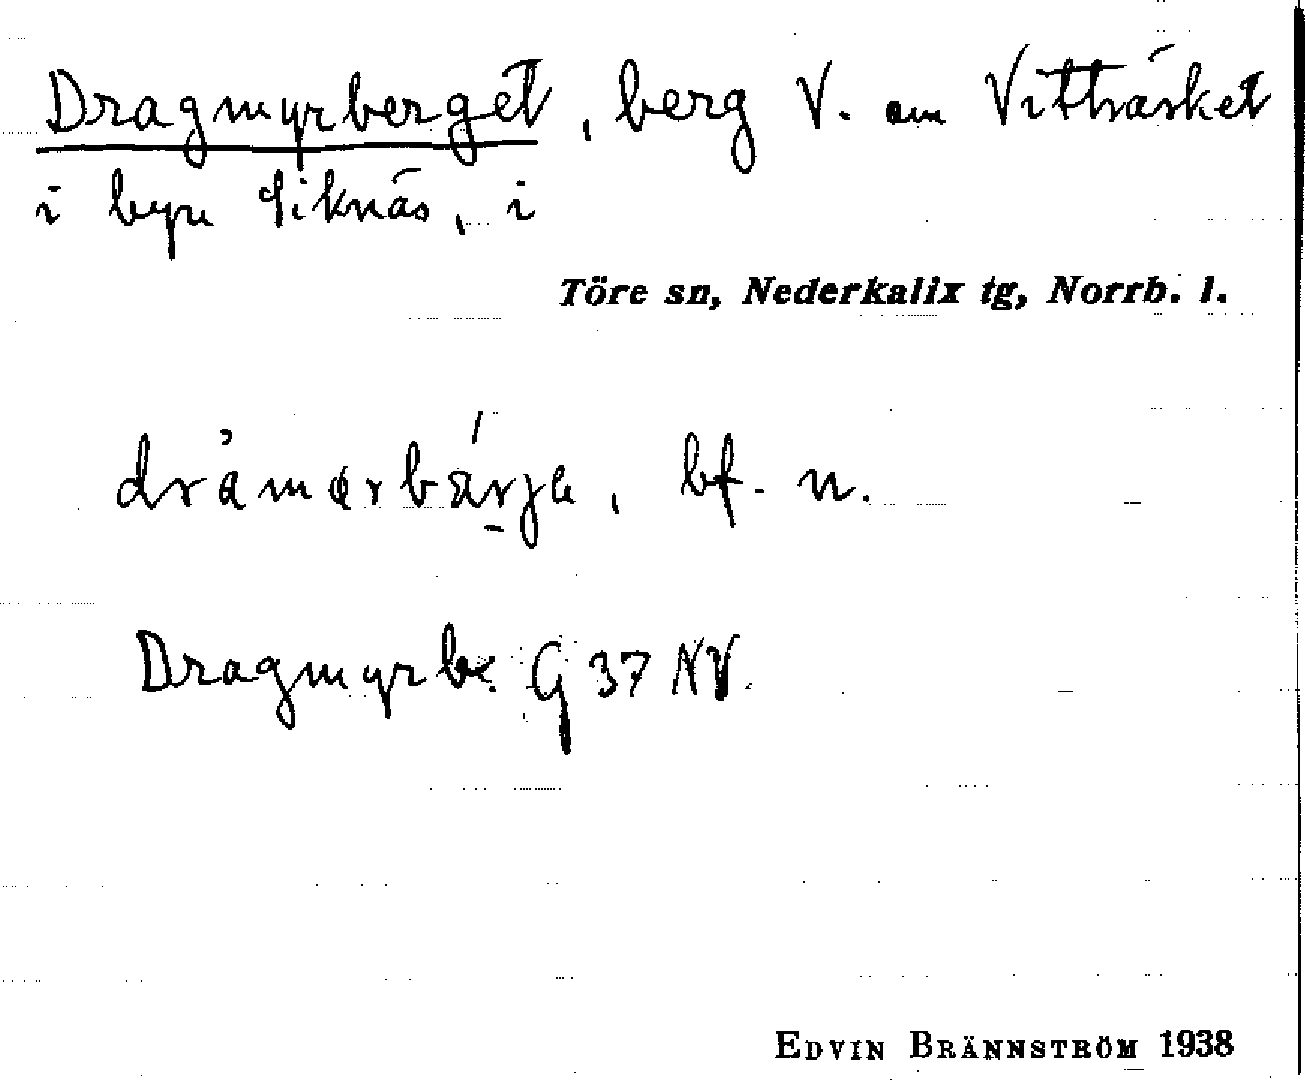 Dragmyrberget, berg V. om Vitträsket
i byn Siknäs, i
Töre sn, Nederkalix tg, Norrb. l.
bf. n.
Dragmyrb. G 37 NV.
EDVIN BRÄNNSTRÖM 1938